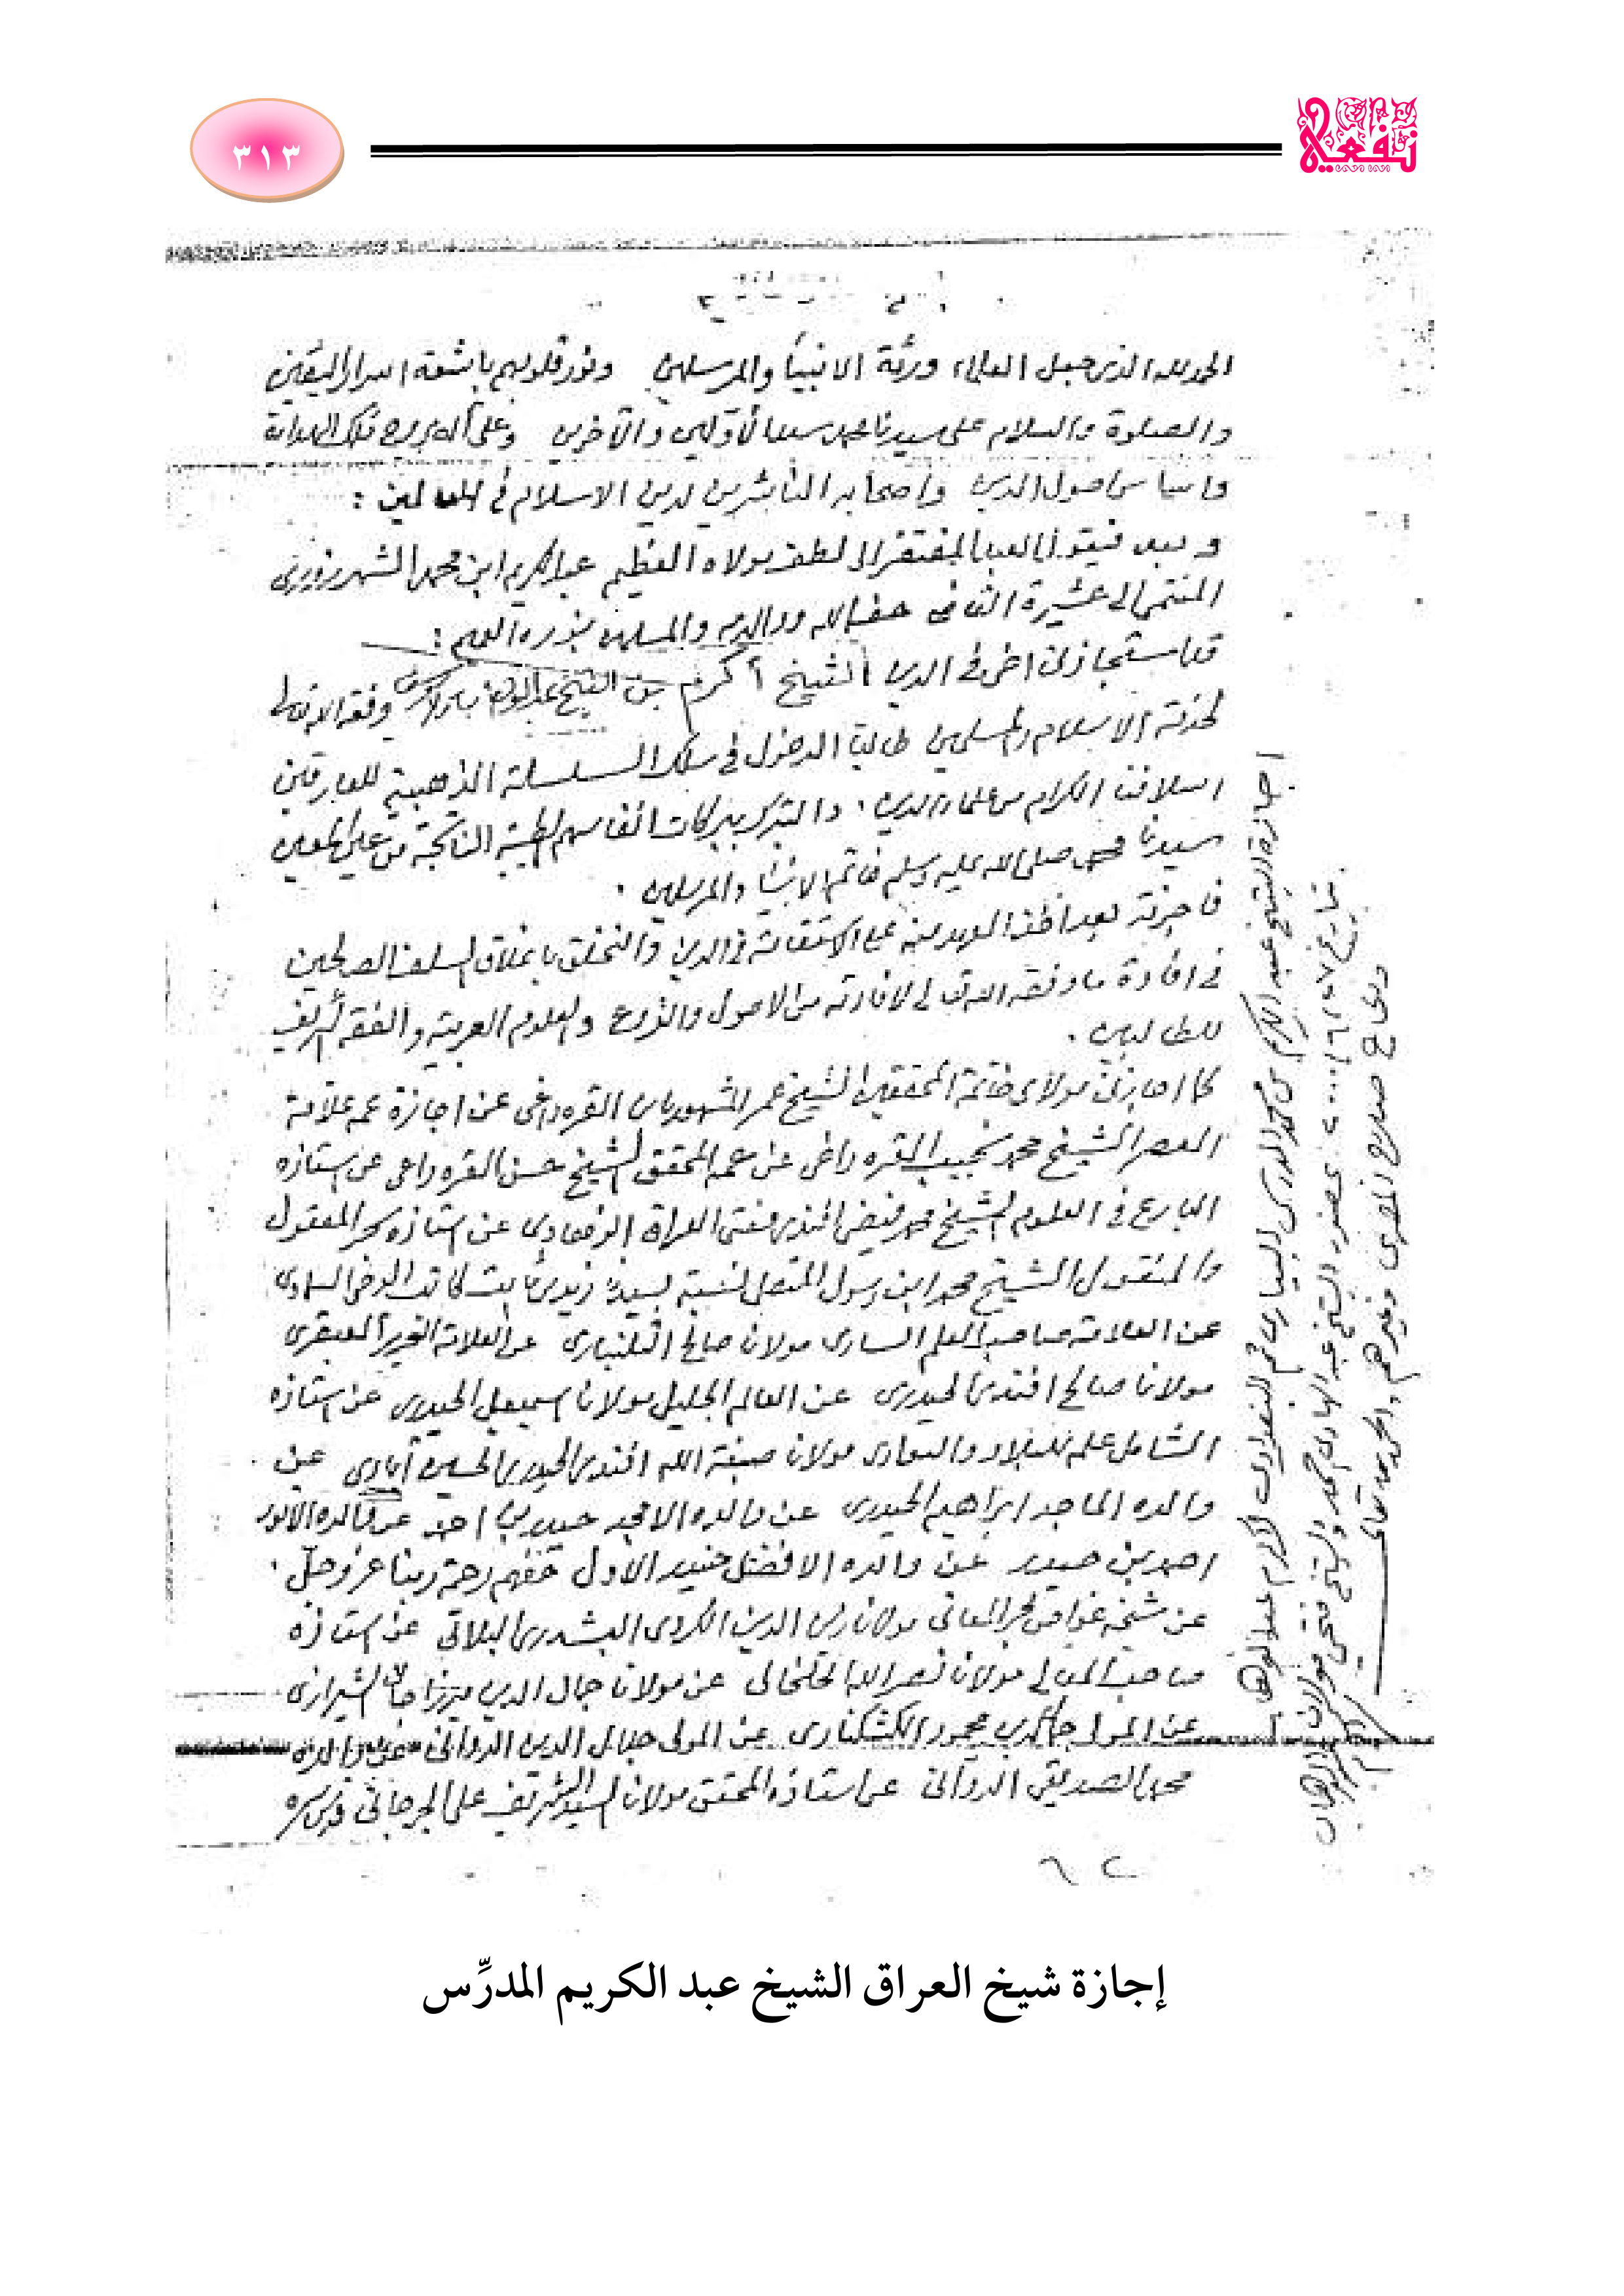 ٣١٣
نفعية
الحمد لله الذي جعل العلماء ورثة الانبياء والمرسلين ونور قلوبهم باشعة اسرار اليقين
والصلوة والسلام على سيدنا محمد سيد الأولين والآخرين وعلى آله بروج فلك الهداية
واساس اصول الدين واصحابه الناشرين لدين الاسلام في العالمين :
وبعد فيقول العبد المفتقر الى لطف مولاه العظيم عبدالكريم ابن محمد الشهرزوري
المنتمي الى عشيرة القاضي حفه الله ووالديه والمسلمين بنوره العميم :
قد استجازني اخي في الدين الشيخ أكرم بن الشيخ عبدالوهاب وفقه الله تعالى
لخدمة الاسلام والمسلمين طالبا الدخول في سلك السلسلة الذهبية للعارفين
اسلافنا الكرام من علماء الدين . والتبرك ببركات انفاسهم الطيبة الناتجة من
سيدنا محمد صلى الله عليه وسلم خاتم الانبياء والمرسلين .
فاجزته بعد اخذ العهد منه على الاستقامة في الدين والتخلق باخلاق السلف الصالحين
في افادة ما وفقه الله تعالى لافادته من الاصول والفروع والعلوم العربية والفقه الشريف
للطالبين .
كما اجازني مولاي خاتمة المحققين الشيخ عمر الشهير بابن القره داغي عن اجازة عمه علامة
العصر الشيخ محمد نجيب القره داغي عن عمه المحقق الشيخ حسن القره داغي عن استاذه
البارع في العلوم الشيخ محمد فيضي افندي مفتي العراق الزهاوي عن استاذه بحر المعقول
والمنقول الشيخ محمد ابن رسول المتصل نسبة بسيدنا زيد بن ثابت كاتب الوحي السماوي
عن العلامة صاحب العلم الساري مولانا صالح عن العلامة النحرير العبقري
مولانا صالح افندي الحيدري عن العالم الجليل مولانا اسمعيل الحيدري عن استاذه
الشامل علمه للبلاد والبوادي مولانا صبغة الله افندي الحيدري الحسين آبادي عن
والده الماجد ابراهيم الحيدري عن والده الامجد حيدر بن احمد عن والده الأنور
احمد بن حيدر عن والده الافضل حيدر الأول حفهم رحمة ربنا عز وجل .
عن شيخه غواص بحر المعاني مولانا زين الدين الكردي البلاتي عن استاذه
صاحب المعالي مولانا نصر الله الخلخالي عن مولانا جمال الدين ميرزا جان الشيرازي
عن المولى جمال الدين محمود عن المولى جلال الدين الدواني عن والده
محمد الصديقي الدواني عن استاذه المحقق مولانا السيد الشريف علي الجرجاني قدس سره
إجازة شيخ العراق الشيخ عبد الكريم المدرِّس